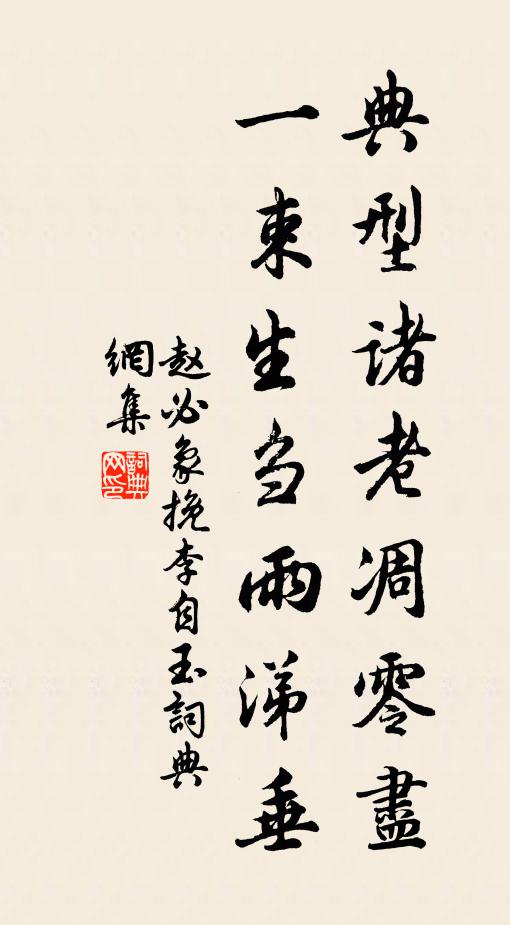 典型诸老凋零盡
一束生刍雨涕垂
赵必象挽李自玉詞典
網集
詞典
网印